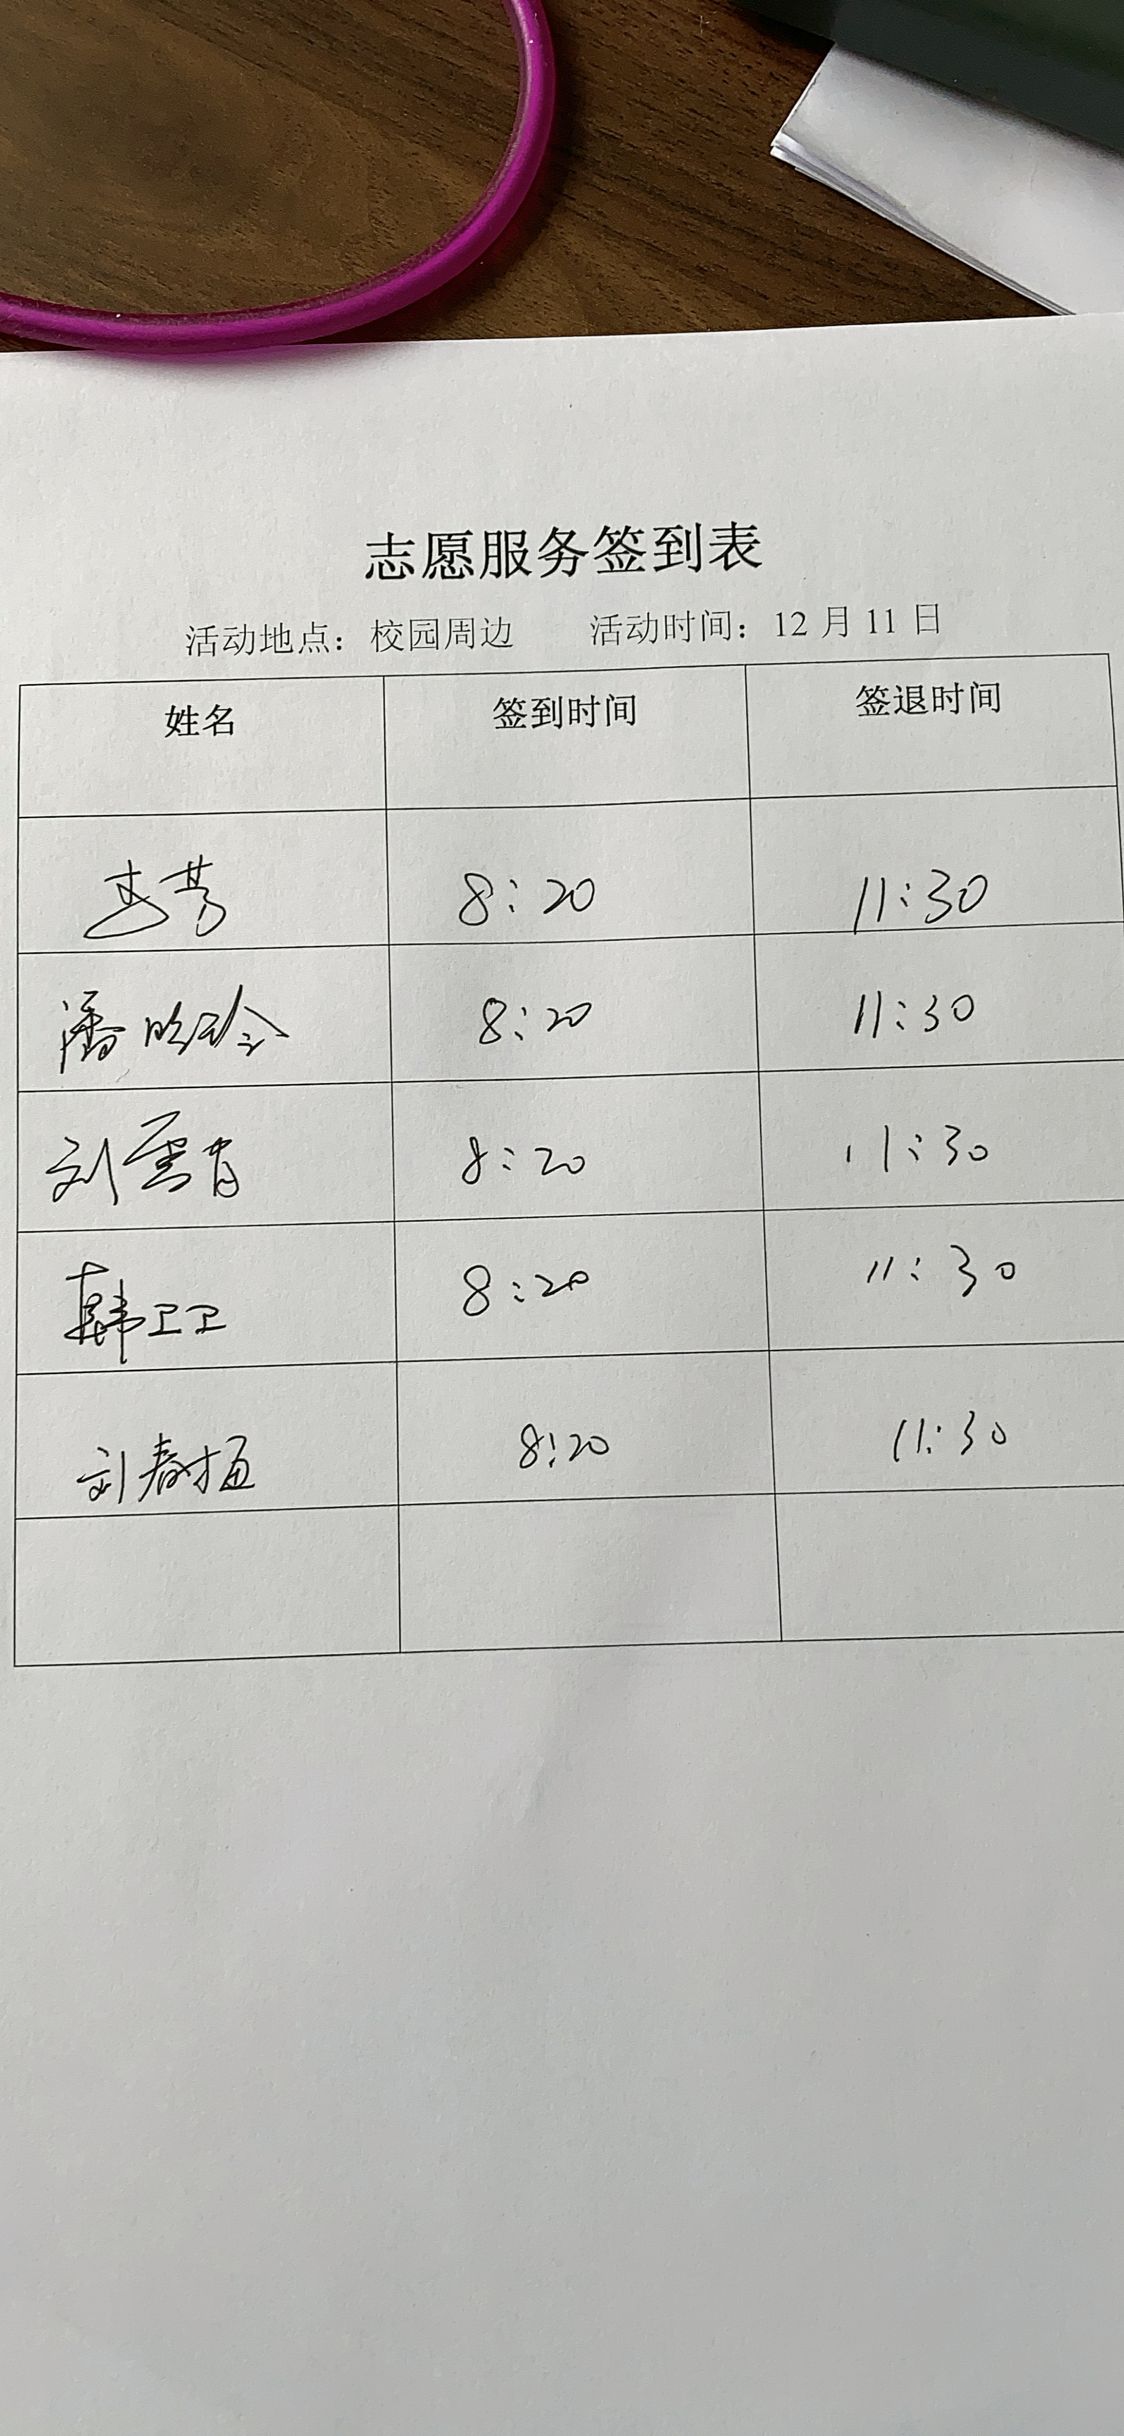 志愿服务签到表
活动地点：校园周边 活动时间：12月11日
姓名 签到时间 签退时间
李芳 8:20 11:30
潘晓玲 8:20 11:30
刘雪 8:20 11:30
韩卫卫 8:20 11:30
刘春梅 8:20 11:30